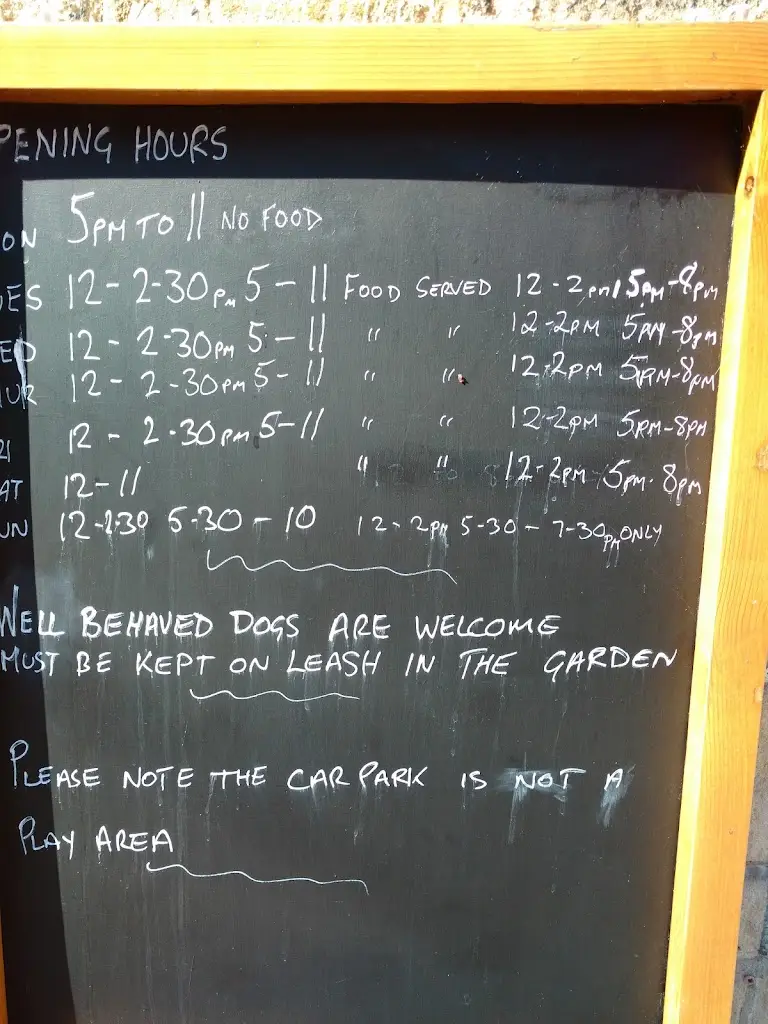 PENING HOURS
ON 5PM TO 11 NO FOOD
ES 12 - 2-30PM 5 - 11 FOOD SERVED 12 - 2PM / 5PM - 8PM
ED 12 - 2-30PM 5 - 11 " " 12 - 2PM 5PM - 8PM
HUR 12 - 2-30PM 5 - 11 " " 12-2PM 5PM-8PM
12 - 2-30PM 5-11 " " 12-2PM 5PM-8PM
AT 12-11 " " 12-2PM 5PM-8PM
UN 12-2-30 5-30 - 10 12 - 2PM 5-30 - 7-30PM ONLY
WELL BEHAVED DOGS ARE WELCOME
MUST BE KEPT ON LEASH IN THE GARDEN
PLEASE NOTE THE CAR PARK IS NOT A
PLAY AREA